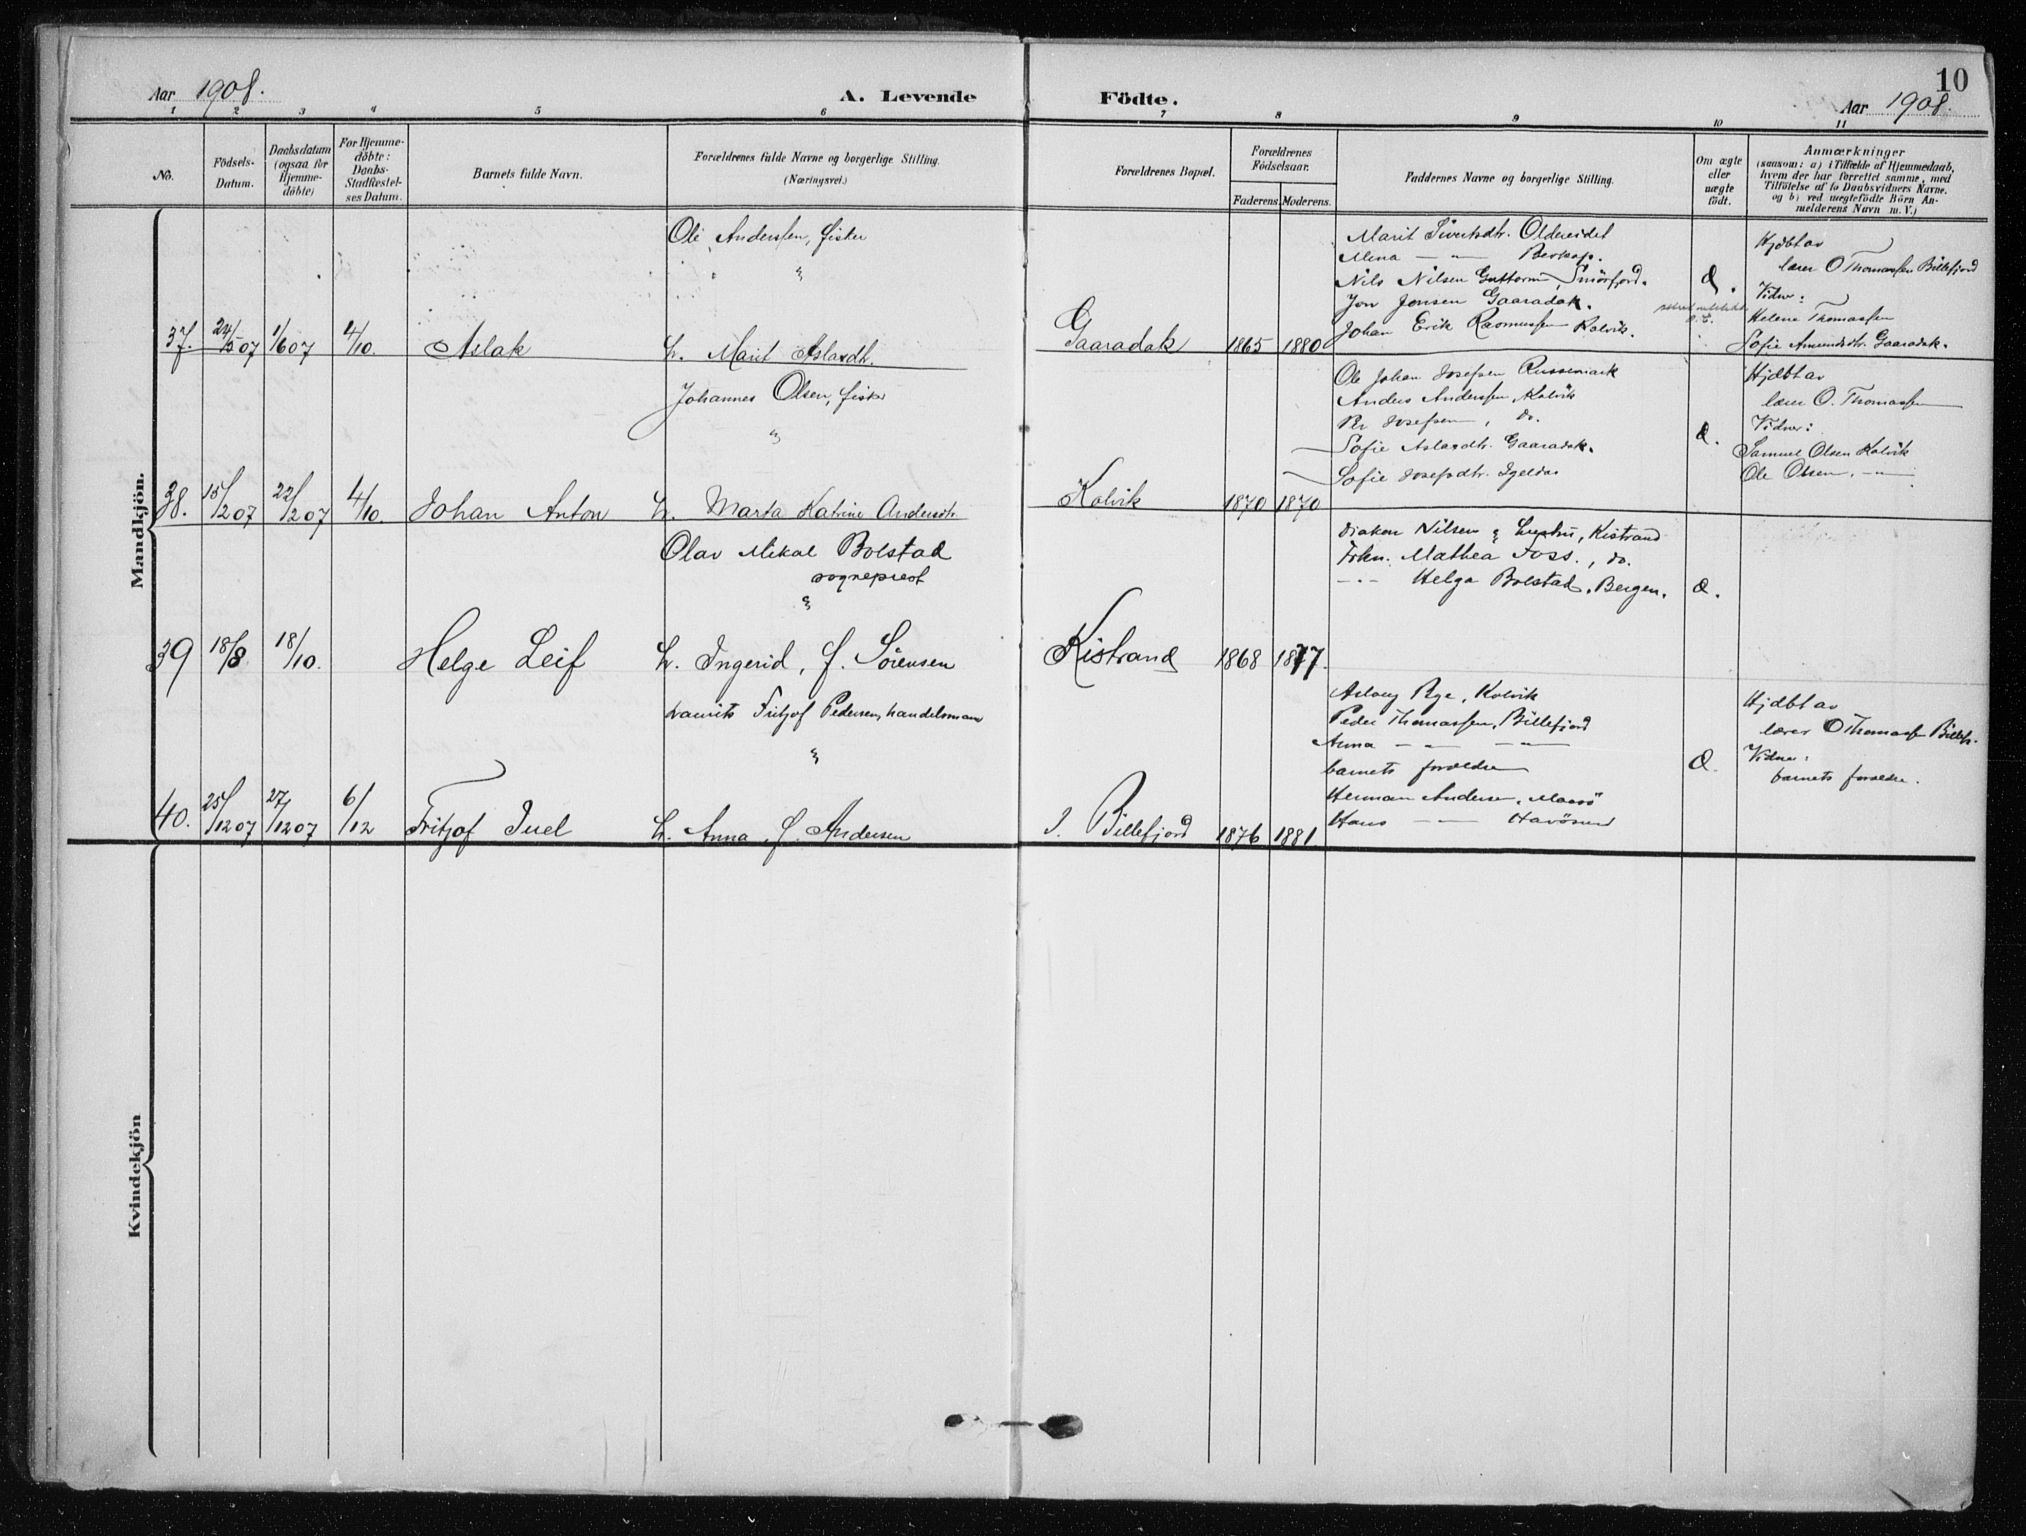 10
Aar 1908.
A. Levende
Födte.
Aar 1908.
1 2 3 4 5 6 7 8 9 10 11
No.
Födsels-
Datum.
Daabsdatum
(ogsaa for
Hjemme-
döbte)
For Hjemme-
döbte:
Daabs-
Stadfæstel-
ses Datum.
Barnets fulde Navn.
Forældrenes fulde Navne og borgerlige Stilling.
(Næringsvei.)
Forældrenes Bopæl.
Forældrenes
Födselsaar.
Faderens. Moderens.
Faddernes Navne og borgerlige Stilling.
Om ægte
eller
uægte
født.
Anmærkninger
(saasom: a) i Tilfælde af Hjemmedaab,
hvem der har forrettet samme, med
Tilföielse af to Daabsvidners Navne.
og b) ved uægtefödte Börn An-
melderens Navn m. V.)
Mandkjön.
Ole Anderssen, fisker
"
37. 24/5 07 1/6 07 4/10. Aslak
h. Marit Aslaksdtr.
Gaaradak 1865 1880
Marit Sivertsdtr. Oldereidet
Mena — " —
Nils Nilsen Guttorm, Smörfjord.
Jon Jonsen Gaaradak.
Johan Erik Rasmussen Kolvik.
Æ.
Hjdbt av
lærer O Thomassen Billefjord
Vidner:
Helene Thomassen
Sofie Amundsdtr. Gaaradak.
Johannes Olsen, fisker
"
38. 15/12 07 22/12 07 4/10. Johan Anton
h. Marta Katrine Andersdtr.
Kolvik 1870 1870
Ole Johan Josefsen Russemark
Anders Anderssen, Kolvik
Per Josefsen, do.
Sofie Aslaksdtr. Gaaradak.
Sofie Josefsdtr. Igeldas
Æ.
Hjdbt av
lærer O. Thomassen
Vidner:
Samuel Olsen Kolvik
Ole Olsen, — " —
Olav Mikal Bolstad
sogneprest
"
39 18/8 18/10. Helge Leif
h. Ingerid, f. Sörensen
Kistrand 1868 1877.
Diakon Nilsen & hustru, Kistrand
Frkn. Mathea Foss., do.
— " — Helga Bolstad, Bergen.
Æ.
Laurits Fritjof Pedersen, handelsmann
"
40. 25/12 07 27/12 07 6/12 Fritjof Juel
h. Anna, f. Andersen
I. Billefjord 1876 1881.
Aslaug Rye, Kolvik
Peder Thomassen, Billefjord
Anna — " — — " —
barnets forældre
Herman Andersen, Maasö
Hans — " — Havösund
Æ.
Hjdbt av
lærer O Thomassen Billefj.
Vidner:
barnets forældre.
Kvindekjön